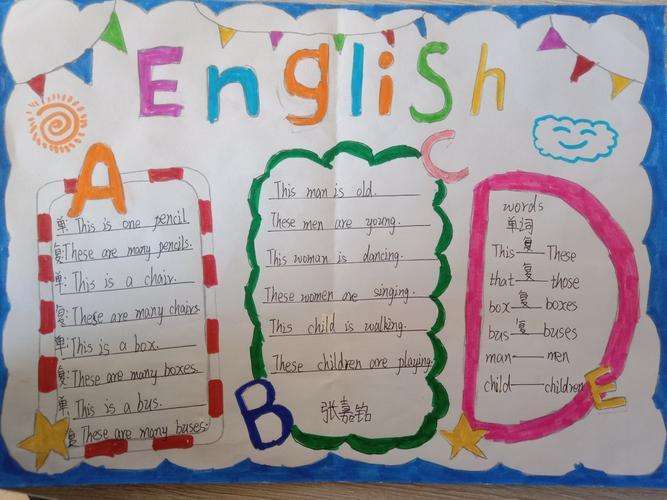 English
A
单: This is one pencil
复: These are many pencils.
单: This is a chair.
复: These are many chairs.
单: This is a box.
复: These are many boxes.
单: This is a bus.
复 These are many buses.
B
This man is old.
These men are young.
This woman is dancing.
These women are singing.
This child is walking.
These children are playing.
张嘉铭
C
D
words
单词
This 复 These
that 复 those
box 复 boxes
bus 复 buses
man — men
child — children
E